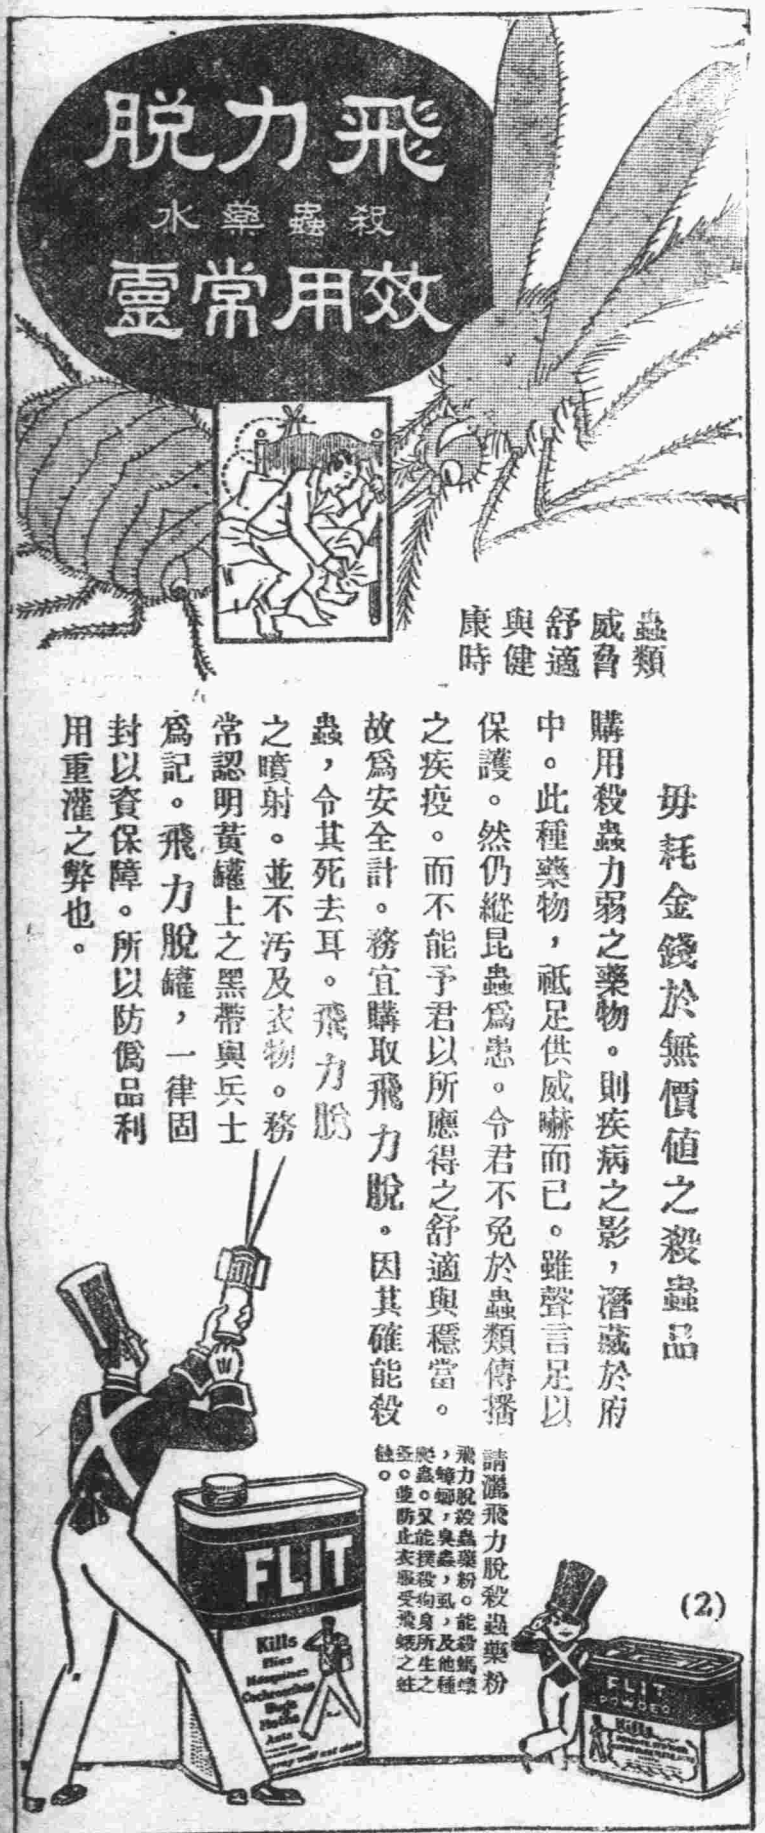 飛力脫
殺蟲藥水
效用常靈
蟲類
威脅
舒適
與健
康時
毋耗金錢於無價值之殺蟲品
購用殺蟲力弱之藥物。則疾病之影，潛藏於府
中。此種藥物，祗足供威嚇而已。雖聲言足以
保護。然仍縱昆蟲爲患。令君不免於蟲類傳播
之疾疫。而不能予君以所應得之舒適與穩當。
故爲安全計。務宜購取飛力脫。因其確能殺
蟲，令其死去耳。飛力脫
之噴射。並不汚及衣物。務
常認明黃罐上之黑帶與兵士
爲記。飛力脫罐，一律固
封以資保障。所以防僞品利
用重灌之弊也。
請灑飛力脫殺蟲藥粉
飛力脫殺蟲藥粉。能殺螞蟻
，蟑螂，臭蟲，虱，及他種
爬蟲。又能撲殺狗身所生之
蚤。並防止衣服受飛蛾之蛀
蝕。
(2)
FLIT
Kills
Flies
Mosquitoes
Cockroaches
Bugs
Moths
Ants
FLIT
POWDER
Kills